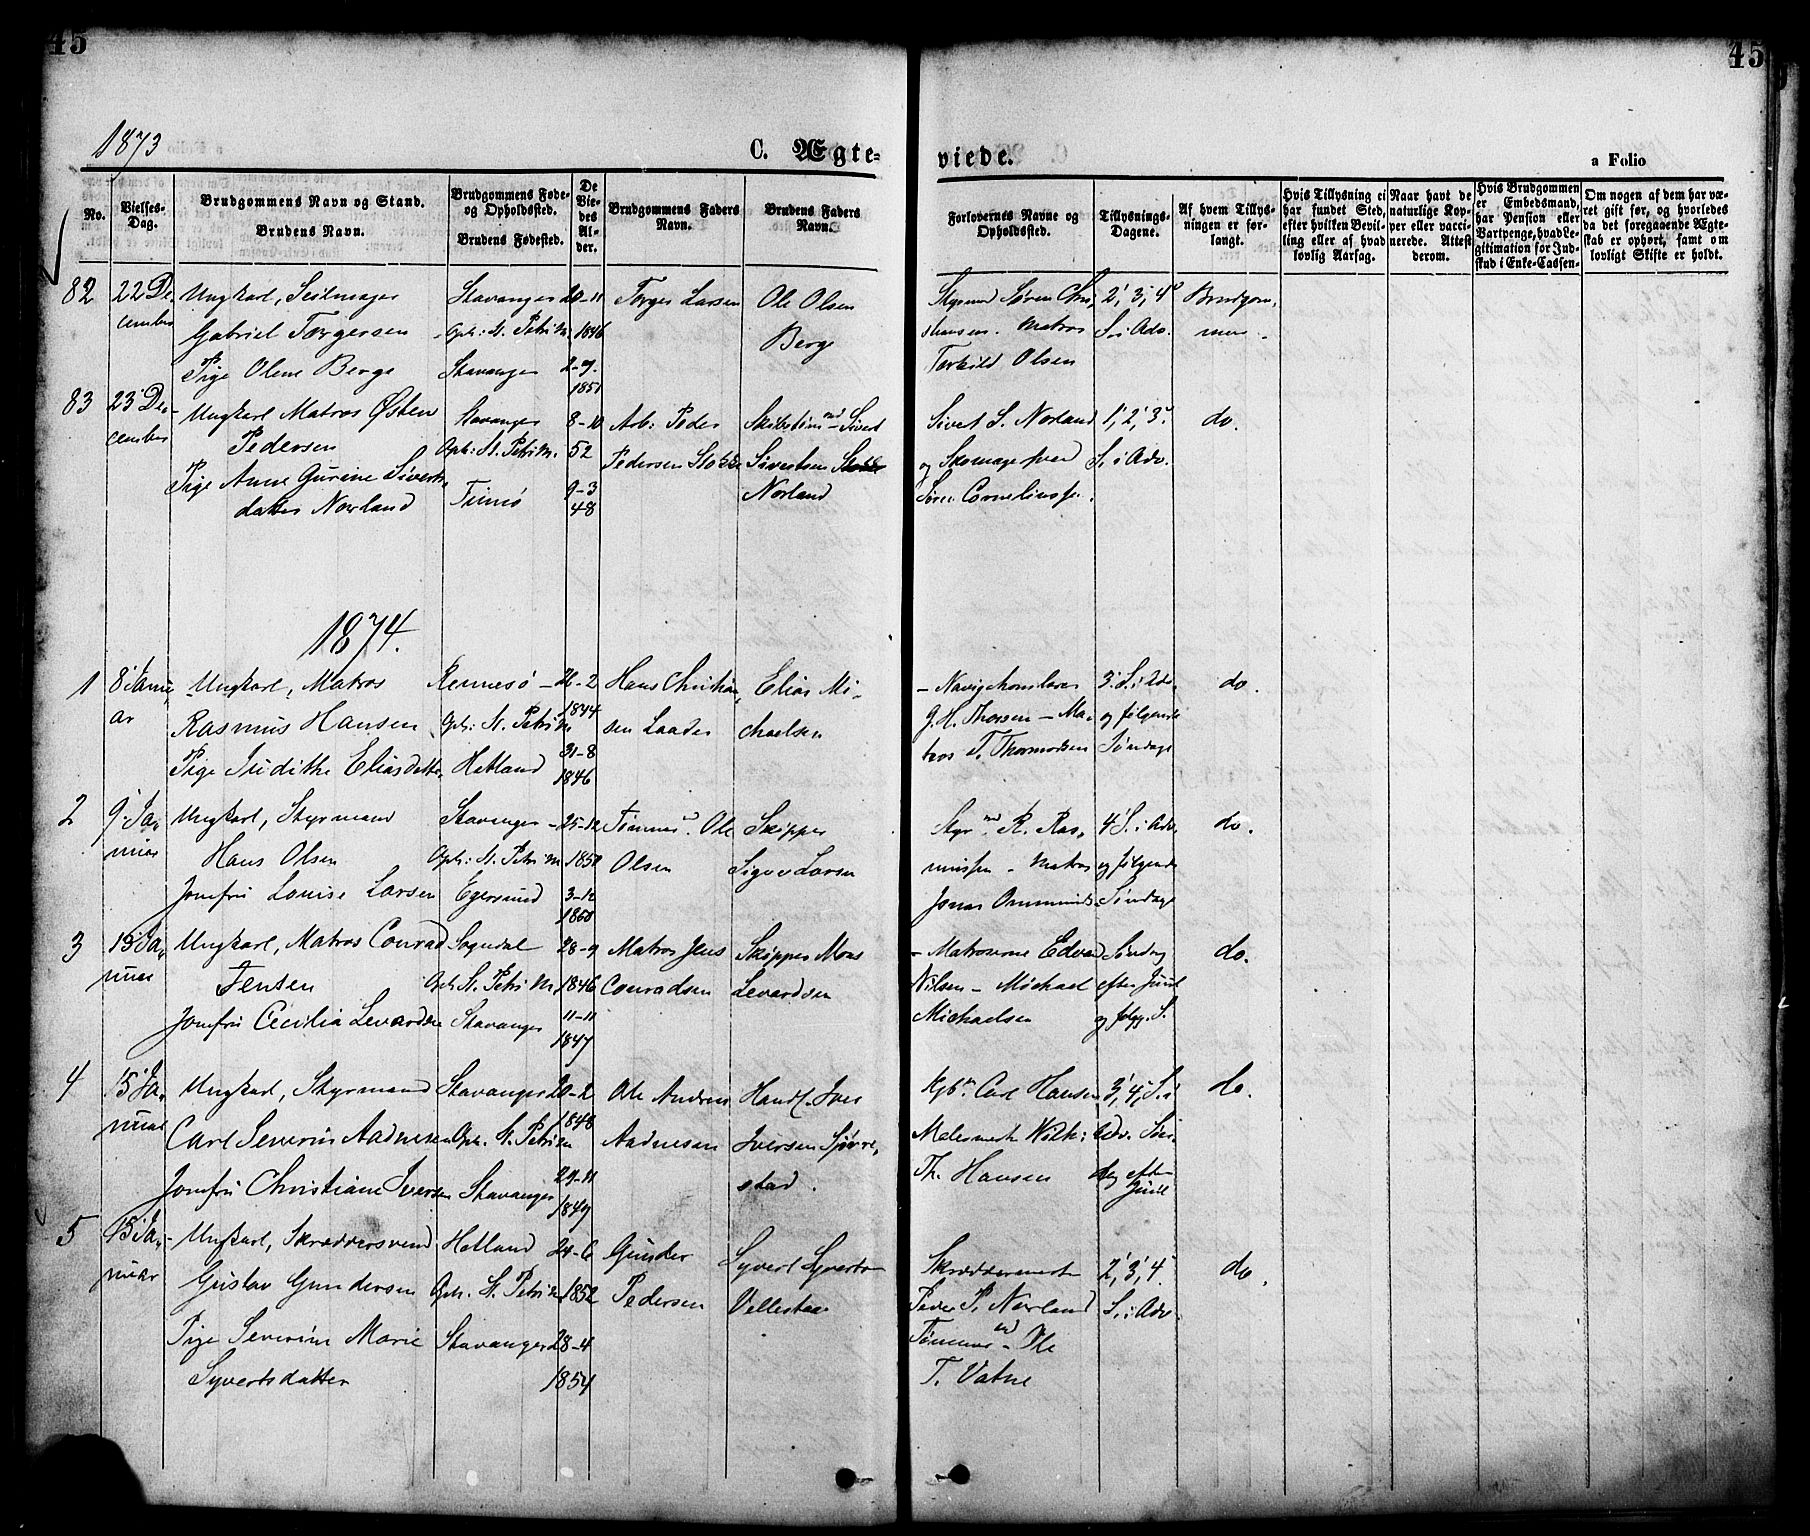 45
45
1873
C. Ægte-
viede.
a Folio
No.
Vielses-
Dag.
Brudgommens Navn og Stand.
Brudens Navn.
Brudgommens Føde-
og Opholdssted.
Brudens Fødested.
De
Vie-
des
Al-
der.
Brudgommens Faders
Navn.
Brudens Faders
Navn.
Forlovernes Navne og
Opholdssted.
Tillysnings-
Dagene.
Af hvem Tillys-
ningen er for-
langt.
Hvis Tillysning ei
har fundet Sted,
efter hvilken Bevil-
ling eller af hvad
lovlig Aarsag.
Naar havt de
naturlige Kop-
per eller vacci-
nerede. Attest
derom.
Hvis Brudgommen
er Embedsmand,
har Pension eller
Vartpenge, hvad Le-
gitimation for Ind-
skud i Enke-Cassen-
Om nogen af dem har væ-
ret gift før, og hvorledes
da det foregaaende Ægte-
skab er ophørt, samt om
lovligt Skifte er holdt.
82
22 De-
cember
Ungkarl, Seilmager
Gabriel Torgersen
Pige Olene Berge
Stavanger
Oph: St. Petri M.
Stavanger
20-11
1846
2-9.
1851
Torger Larsen
Ole Olsen
Berge
Styrmand Søren Chri-
stensen. Matros
Torkild Olsen
2', 3', 4'
S. i Adv.
Brudgom-
men.
83
23 De-
cember
Ungkarl Matros Østen
Pedersen
Pige Anne Gurine Siverts-
datter Norland
Stavanger
Oph: St. Petri M.
Finnø
8-10
52
9-3
48
Arb: Peder
Pedersen Stokke
Skibstim-nd Sivert
Sivertsen
Norland
Sivert S. Norland
og Skomagersvend
Søren Corneliussen.
1', 2', 3'
S. i Adv.
do.
1874.
1
8' Janu-
ar
Ungkarl, Matros
Rasmus Hansen
Pige Judithe Eliasdatter
Rennesø
Oph: St. Petri M
Hetland
26-2
1844
31-8
1846
Hans Christian-
sen Laader
Elias Mi-
chaelsen
Navigationslærer
G. H. Thorsen - Ma-
tros T. Thormodsen
3' S. i Adv.
og følgende
Søndage
do.
2
9' Ja-
nuar
Ungkarl, Styrmand
Hans Olsen
Jomfru Louise Larsen
Stavanger
Oph: St. Petri M
Egersund
25-12
1850
3-12
1850
Tømmerm. Ole
Olsen
Skipper
Sigv. Larsen
Styrmd R. Ras-
mussen - Matros
Jonas Ommunds.
4' S. i Adv.
og følgende
Søndage
do.
3
15' Ja-
nuar
Ungkarl, Matros Conrad
Jensen
Jomfru Cecilia Levardsen
Sogndal
Oph. St. Petri M
Stavanger
28-9
1846
11-11
1847
Matros Jens
Conradsen
Skipper Mons
Levardsen
Matroserne Edvard
Nilsen - Michael
Michaelsen
Søndag
efter Juul
og følg. S.
do.
4
15' Ja-
nuar
Ungkarl, Styrmand
Carl Severin Aadnesen
Jomfru Christiane Iversen
Stavanger
Oph. St. Petri M
Stavanger
20-2
1848
29-11
1849
Ole Andreas
Aadnesen
Handl. Iver
Iversen Sjørre-
stad.
Kjbm Carl Hansen
Malermest. Wilh:
Th. Hansen
3', 4', S. i
Adv. Søn-
dag efter
Juul
do.
5
15' Ja-
nuar
Ungkarl, Skræddersvend
Gustav Gundersen
Pige Severine Marie
Syvertsdatter
Hetland
Oph. St. Petri M
Stavanger
24-6
1852
28-4
1854
Gunder
Pedersen
Syvert Syvertsen
Vellestad
Skræddermest.
Peder P. Norland
Tømmermd Ole
T. Vatne
2', 3', 4'
S. i Adv.
do.